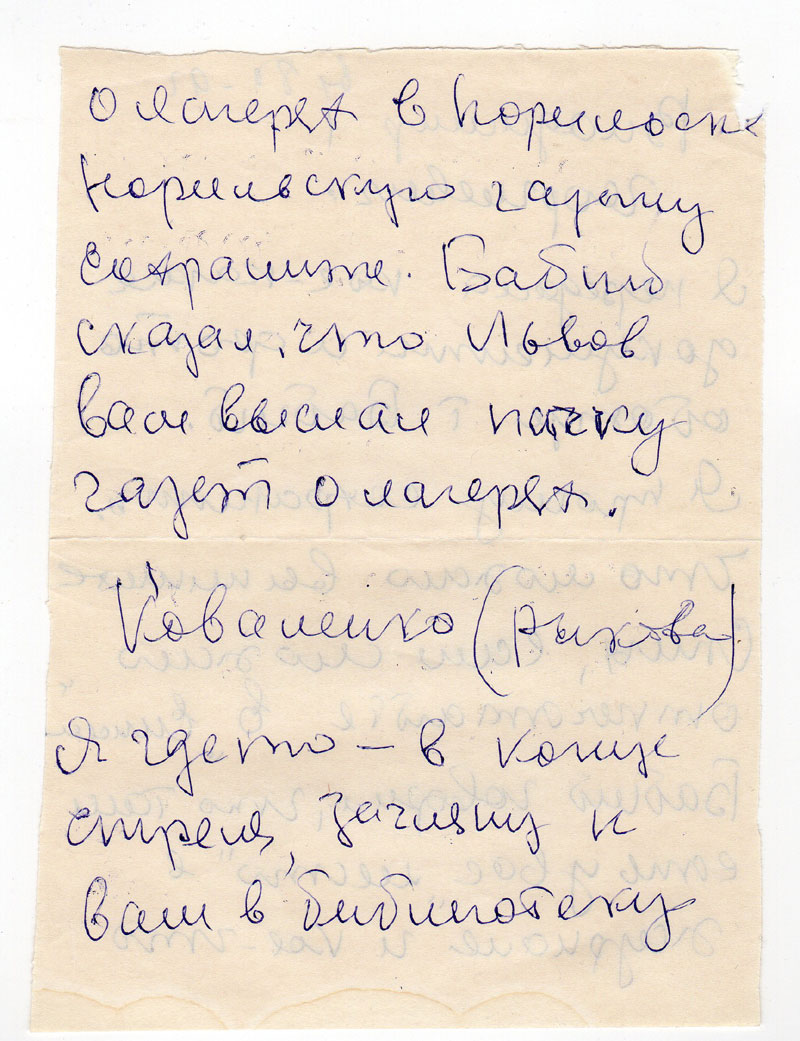 о лагерях в Норильске
Норильскую газету
сохраните. Бабий
сказал, что Львов
вам выслал пачку
газет о лагерях.
Коваленко (Рыкова)
Я где то – в конце
апреля, загляну к
вам в библиотеку